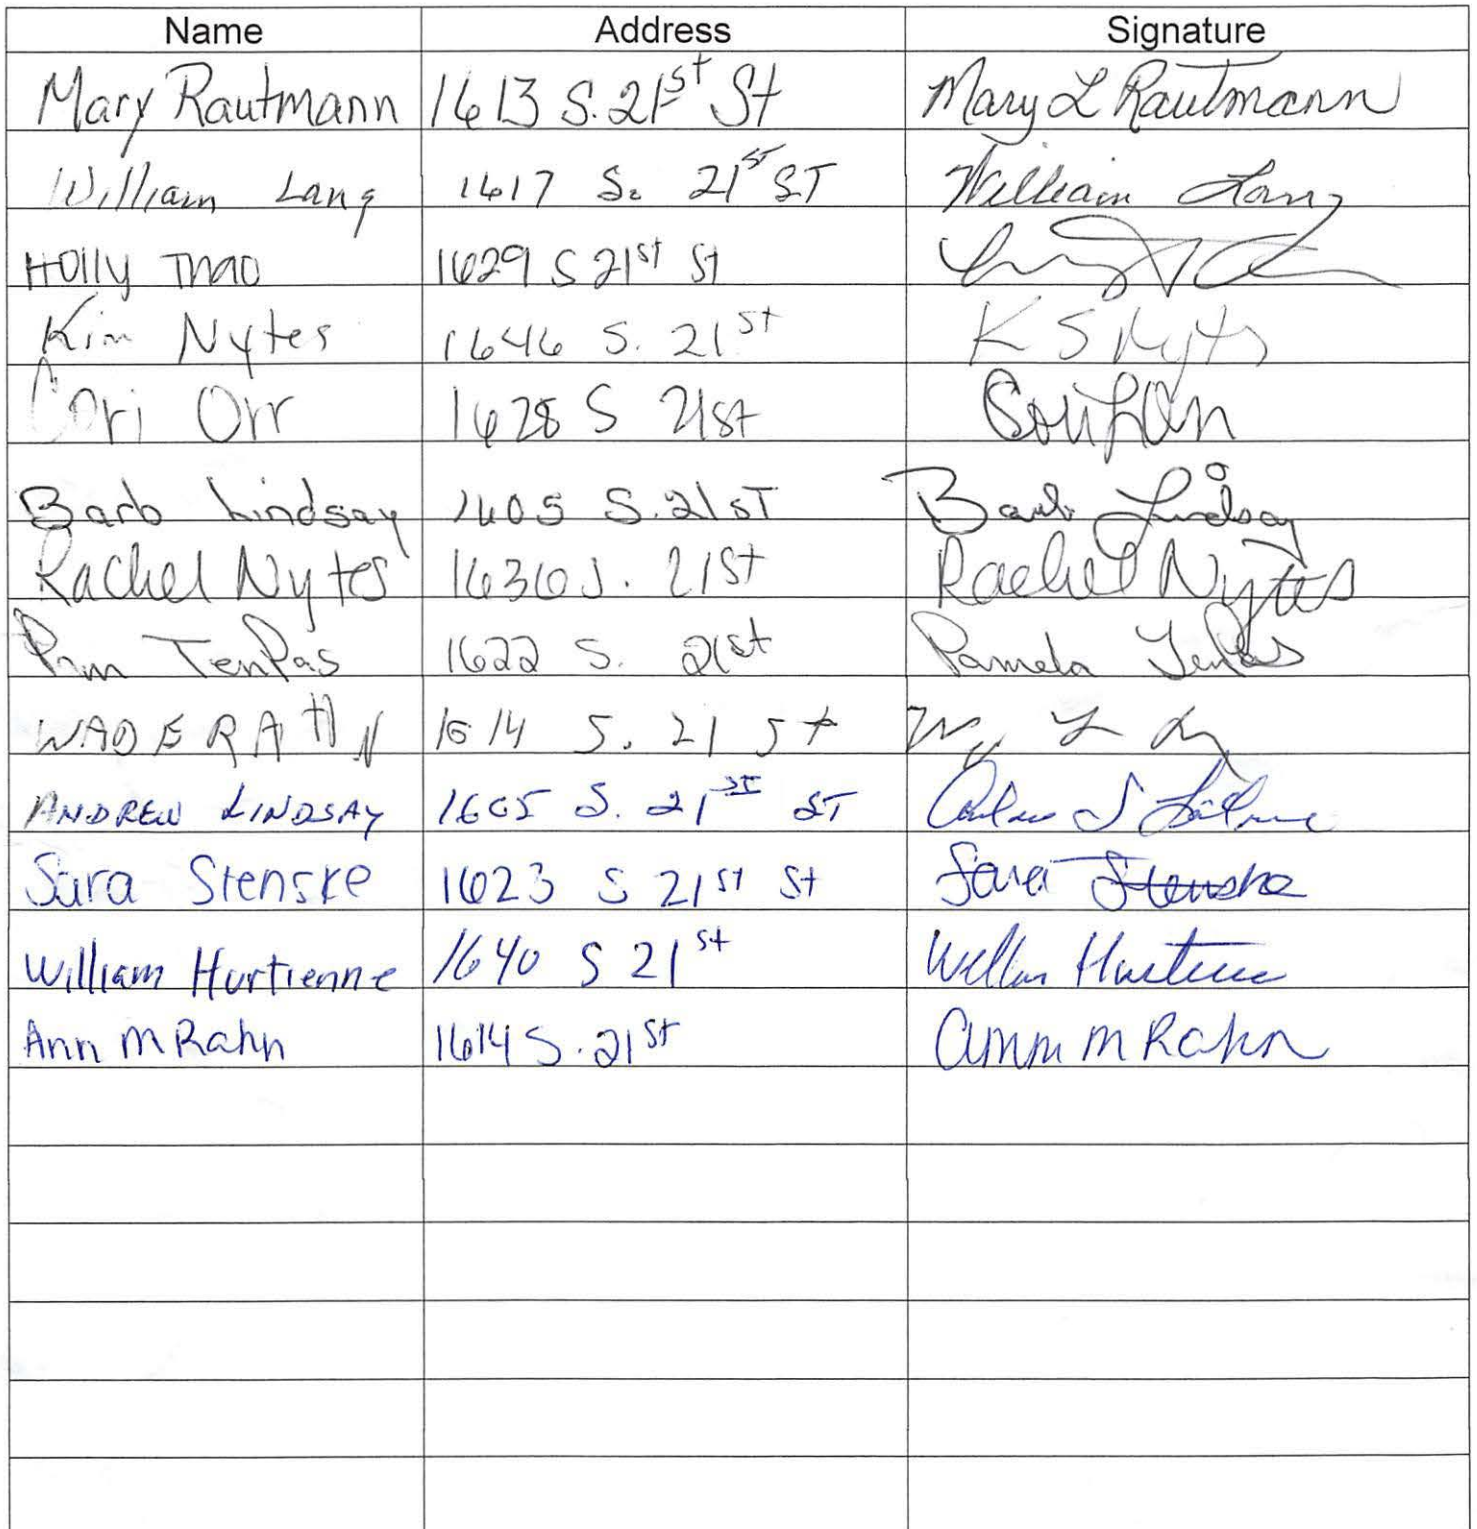 Name Address Signature
Mary Rautmann 1613 S. 21st St Mary L Rautmann
William Lang 1617 So 21st ST William Lang
Holly Thao 1629 S 21st St
Kim Nytes 1646 S. 21st K S Nytes
Cori Orr 1628 S 21st Cori L Orr
Barb Lindsay 1605 S. 21 ST Barb Lindsay
Rachel Nytes 1636 S. 21st Rachel Nytes
Pam TenPas 1622 S. 21st Pamela TenPas
WADE RAHN 1614 S. 21 St
ANDREW LINDSAY 1605 S. 21ST ST
Sara Stenske 1623 S 21st St Sara Stenske
William Hurtienne 1640 S 21st William Hurtienne
Ann M Rahn 1614 S. 21st Ann M Rahn